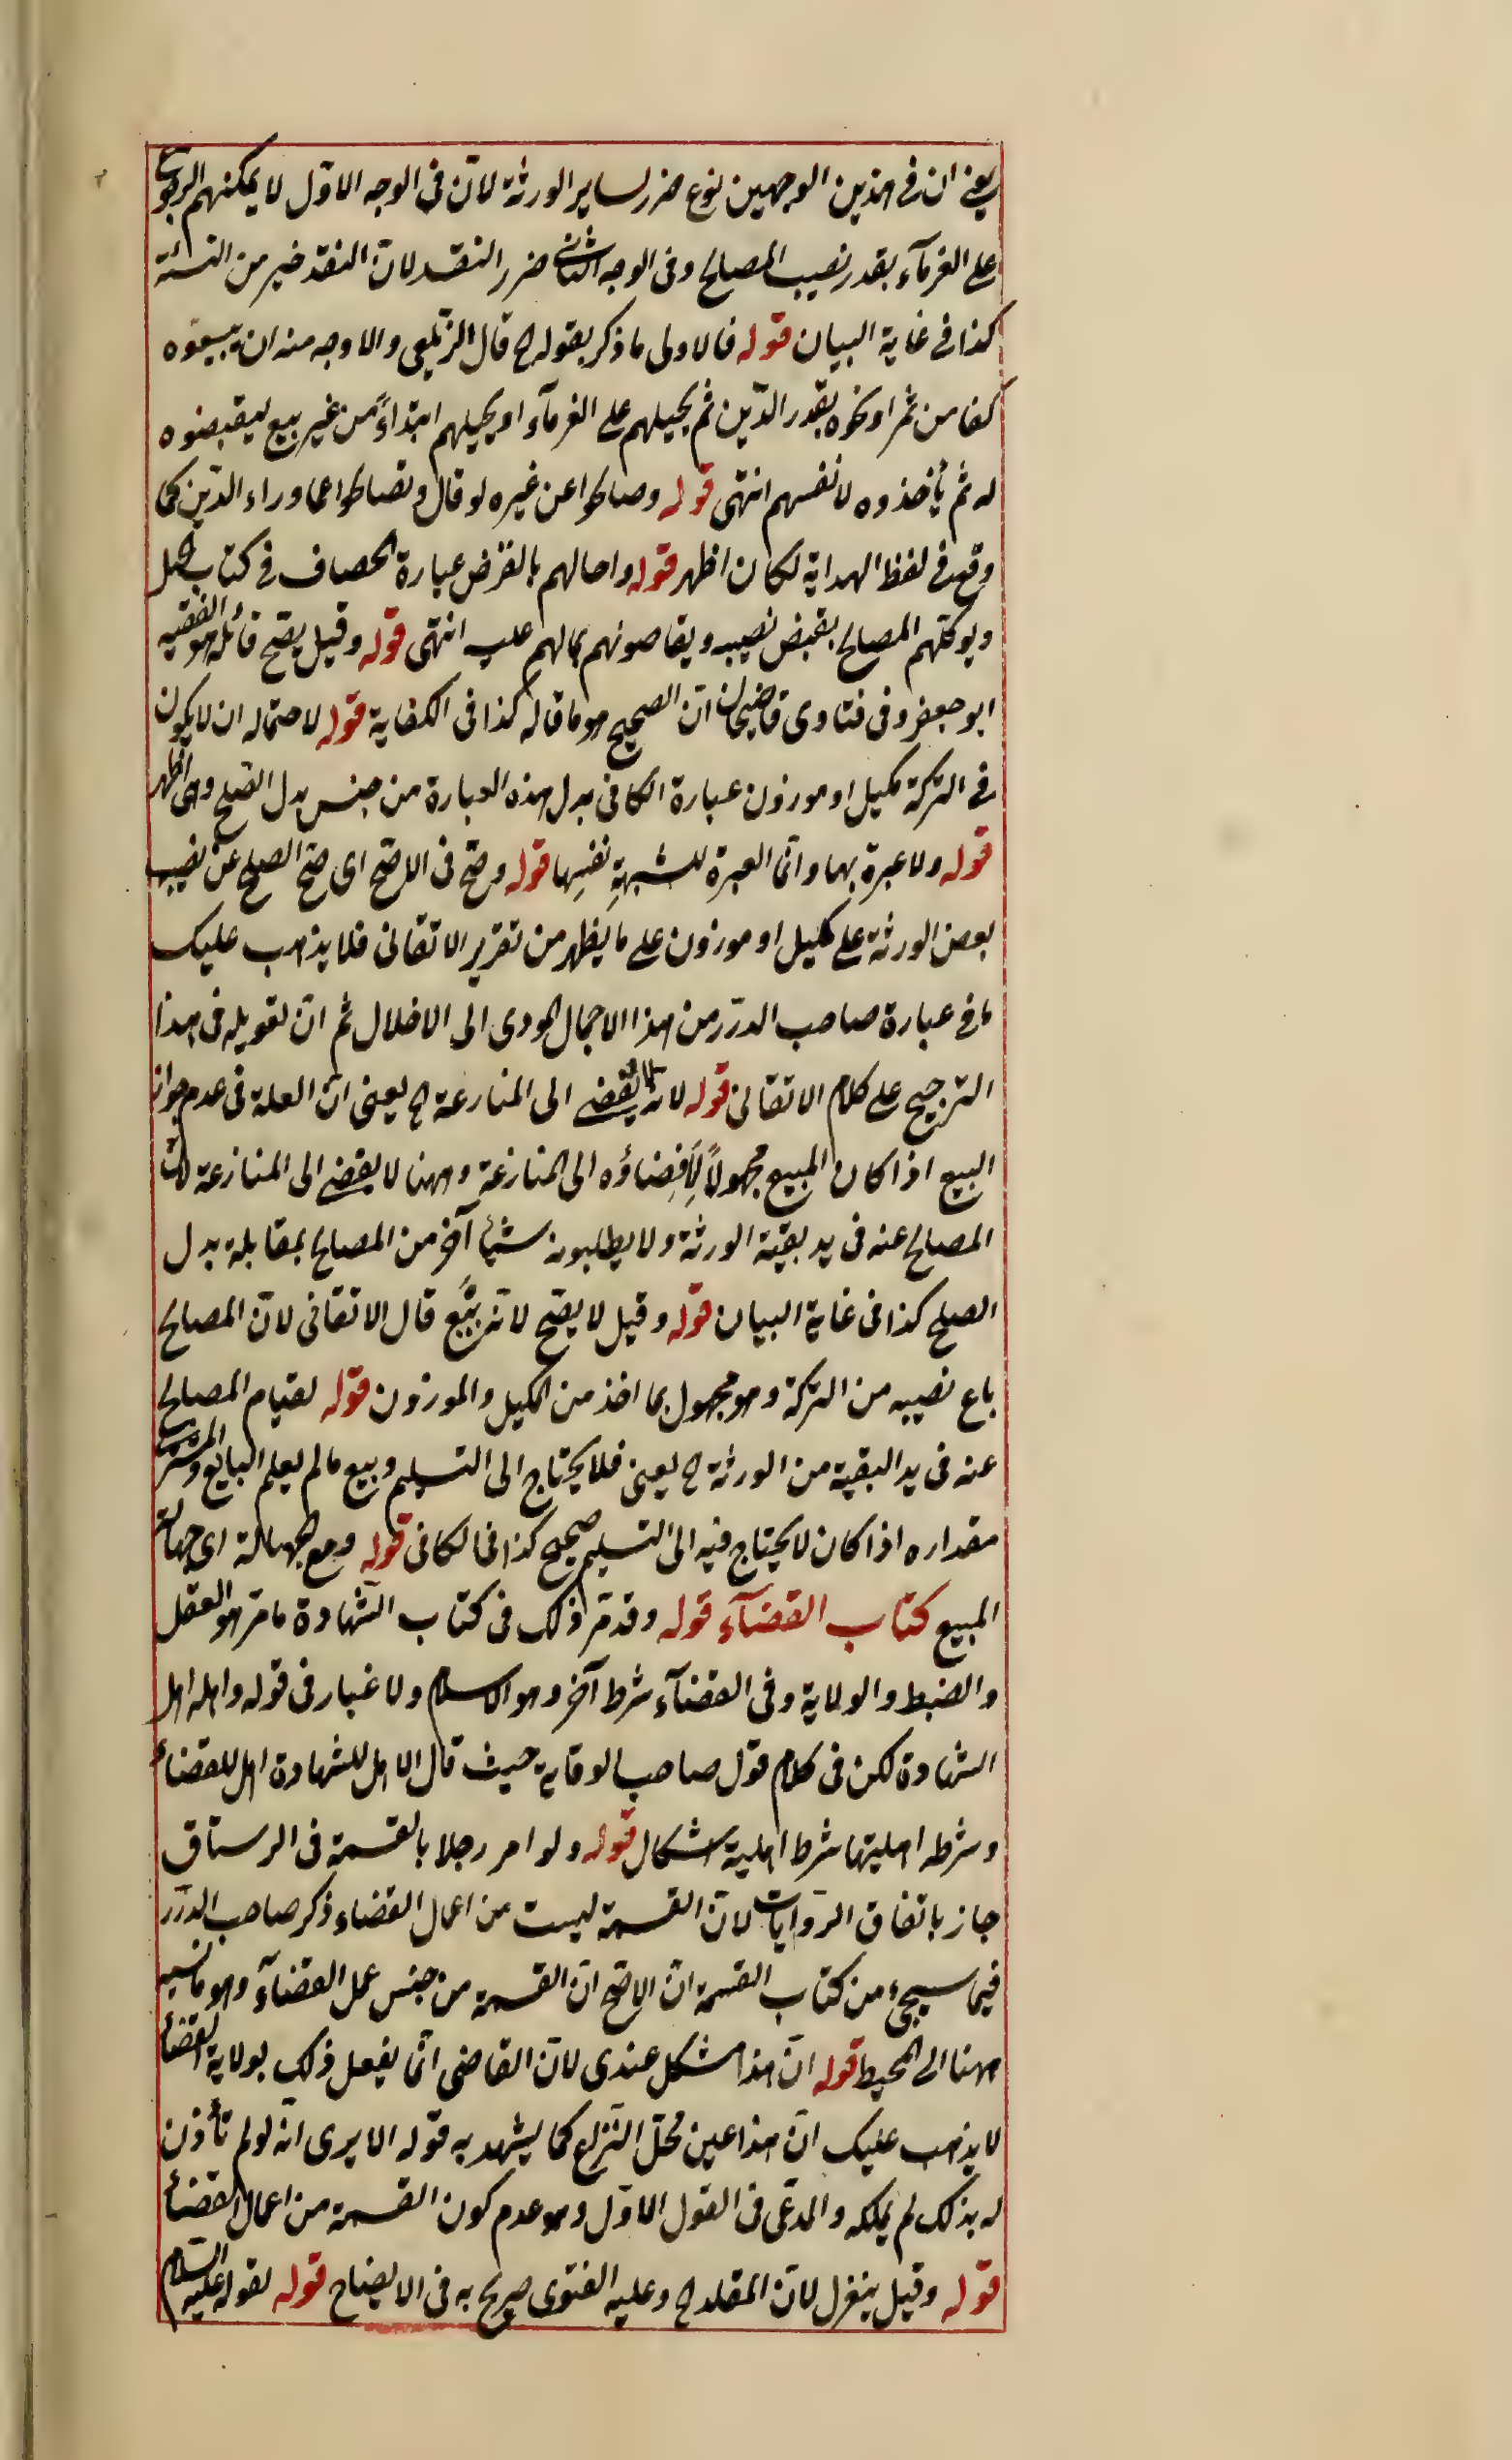 يعني ان في هذين الوجهين نوع ضرر لساير الورثة لانّ فى الوجه الاوّل لا يمكنهم الرجوع
على الغرمآء بقدر نصيب المصالح وفى الوجه الثانى ضرر النقد لانّ النقد خير من النسئة
كذا في غاية البيان قوله فالاولى ما ذكر بقوله ح قال الزيلعى والاوجه منه ان يبيعوه
كفا من تمر او نحوه بقدر الدّين ثم يحيلهم على الغرمآء او يحيلهم ابتداءً من غير بيع ليقبضوه
له ثم يأخذوه لانفسهم انتهى قوله وصالحوا عن غيره لو قال وتصالحوا عما وراء الدّين كما
وقع في لفظ الهداية لكان اظهر قوله واحالهم بالقرض عبارة الخصاف في كتاب الحيل
ويوكلهم المصالح بقبض نصيبه ويقاصونهم بمالهم عليه انتهى قوله وقيل يصّح قائله هو الفقيه
ابو جعفر وفى فتاوى قاضيخان انّ الصحيح هو ما قاله كذا فى الكفاية قوله لاحتماله ان لا يكون
في التركة مكيل او موزون عبارة الكافى بدل هذه العبارة من جنس بدل الصّلح وهى اظهر
قوله ولا عبرة بها وانّما العبرة للشبهةِ نفسِها قوله وصحّ فى الاصّح اى صحّ الصلح عن نصيب
بعض الورثة على مكيل او موزون على ما يظهر من تقرير الاتقانى فلا يذهب عليك
ما في عبارة صاحب الدرر من هذا الاجمال المودى الى الاخلال ثم انّ تعويله فى هذا
الترجيح على كلام الاتقانى قوله لانه لا يفضى الى المنازعة ح يعنى انّ العلة فى عدم جواز
البيع اذا كان المبيع مجهولاً لإفضاؤه الى المنازعة وههنا لا يفضى الى المنازعة لانّ
المصالح عنه فى يد بقيّة الورثة ولا يطلبون شيئا آخر من المصالح بمقابلة بدل
الصلح كذا فى غاية البيان قوله وقيل لا يصّح لانّه بيع قال الاتقانى لانّ المصالح
باع نصيبه من التركة وهو مجهول بما اخذ من المكيل والموزون قوله لقيام المصالح
عنه فى يد البقية من الورثة ح يعنى فلا يحتاج الى التسليم وبيع ما لم يعلم البايع والمشترى
مقداره اذا كان لا يحتاج فيه الى التسليم صحيح كذا فى الكافى قوله ومع جهالة اى جهالة
المبيع كتاب القضآء قوله وقد مّر ذلك فى كتاب الشهادة ما مّر هو العقل
والضبط والولاية وفى القضآء شرط آخر وهو الاسلام ولا غبار فى قوله واهله اهل
الشهادة لكن فى كلام قول صاحب الوقاية حيث قال الاهل للشهادة اهل للقضاء
وشرطه اهليتها شرط اهليته اشكال قوله ولو امر رجلا بالقسمة فى الرستاق
جاز باتفاق الرّوايات لانّ القسمة ليست من اعمال القضاء ذكر صاحب الدرر
فيما سيجئ من كتاب القسمة انّ الاصّح انّ القسمة من جنس عمل القضآء وهو ما نسبه
ههنا الى المحيط قوله انّ هذا مشكل عندى لانّ القاضى انّما يفعل ذلك بولاية القضاء
لا يذهب عليك انّ هذا عين محلّ النّزاع كما يشهد به قوله الا يرى انّه لو لم تأذن
له بذلك لم يملكه والمدّعى فى القول الاوّل وهو عدم كون القسمة من اعمال القضاء
قوله وقيل ينعزل لانّ المقلد ح وعليه الفتوى صرح به فى الايضاح قوله لقوله عليه السلام